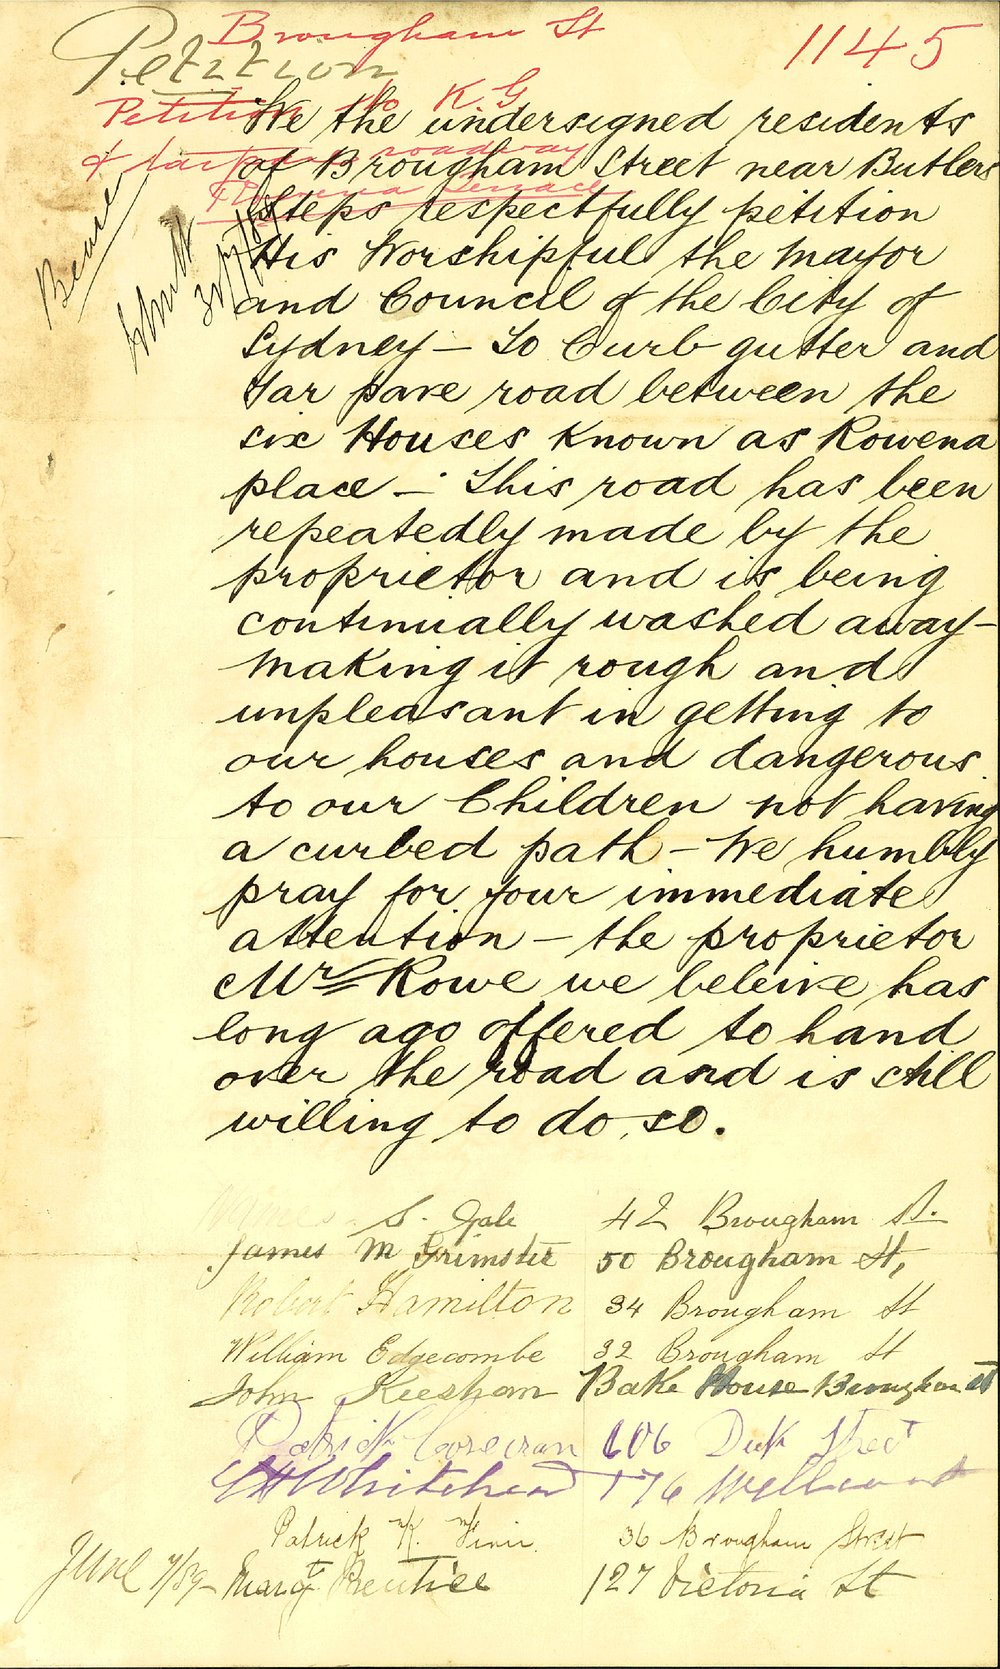 Brougham St
1145
Petition
Petition to K.G
& tar pave roadway
Rowena Terrace
We the undersigned residents
of Brougham Street near Butlers
Steps respectfully petition
His Worshipful the Mayor
and Council of the City of
Sydney – To Curb gutter and
Tar pave road between the
six Houses known as Rowena
place – This road has been
repeatedly made by the
proprietor and is being
continually washed away –
making it rough and
unpleasant in getting to
our houses and dangerous
to our Children not having
a curbed path – We humbly
pray for your immediate
attention – the proprietor
Mr Rowe we beleive has
long ago offered to hand
over the road and is still
willing to do so.
S. Gale 42 Brougham St.
James M Grimster 50 Brougham St,
Robert Hamilton 34 Brougham St
William Edgecombe 32 Brougham St
John Keeshan Bake House Brougham St
Patrick Corcoran 106 Duk Street
Whitehead 176
Patrick K. 36 Brougham Street
June 7/89 – Margt Prentice 127 Victoria St